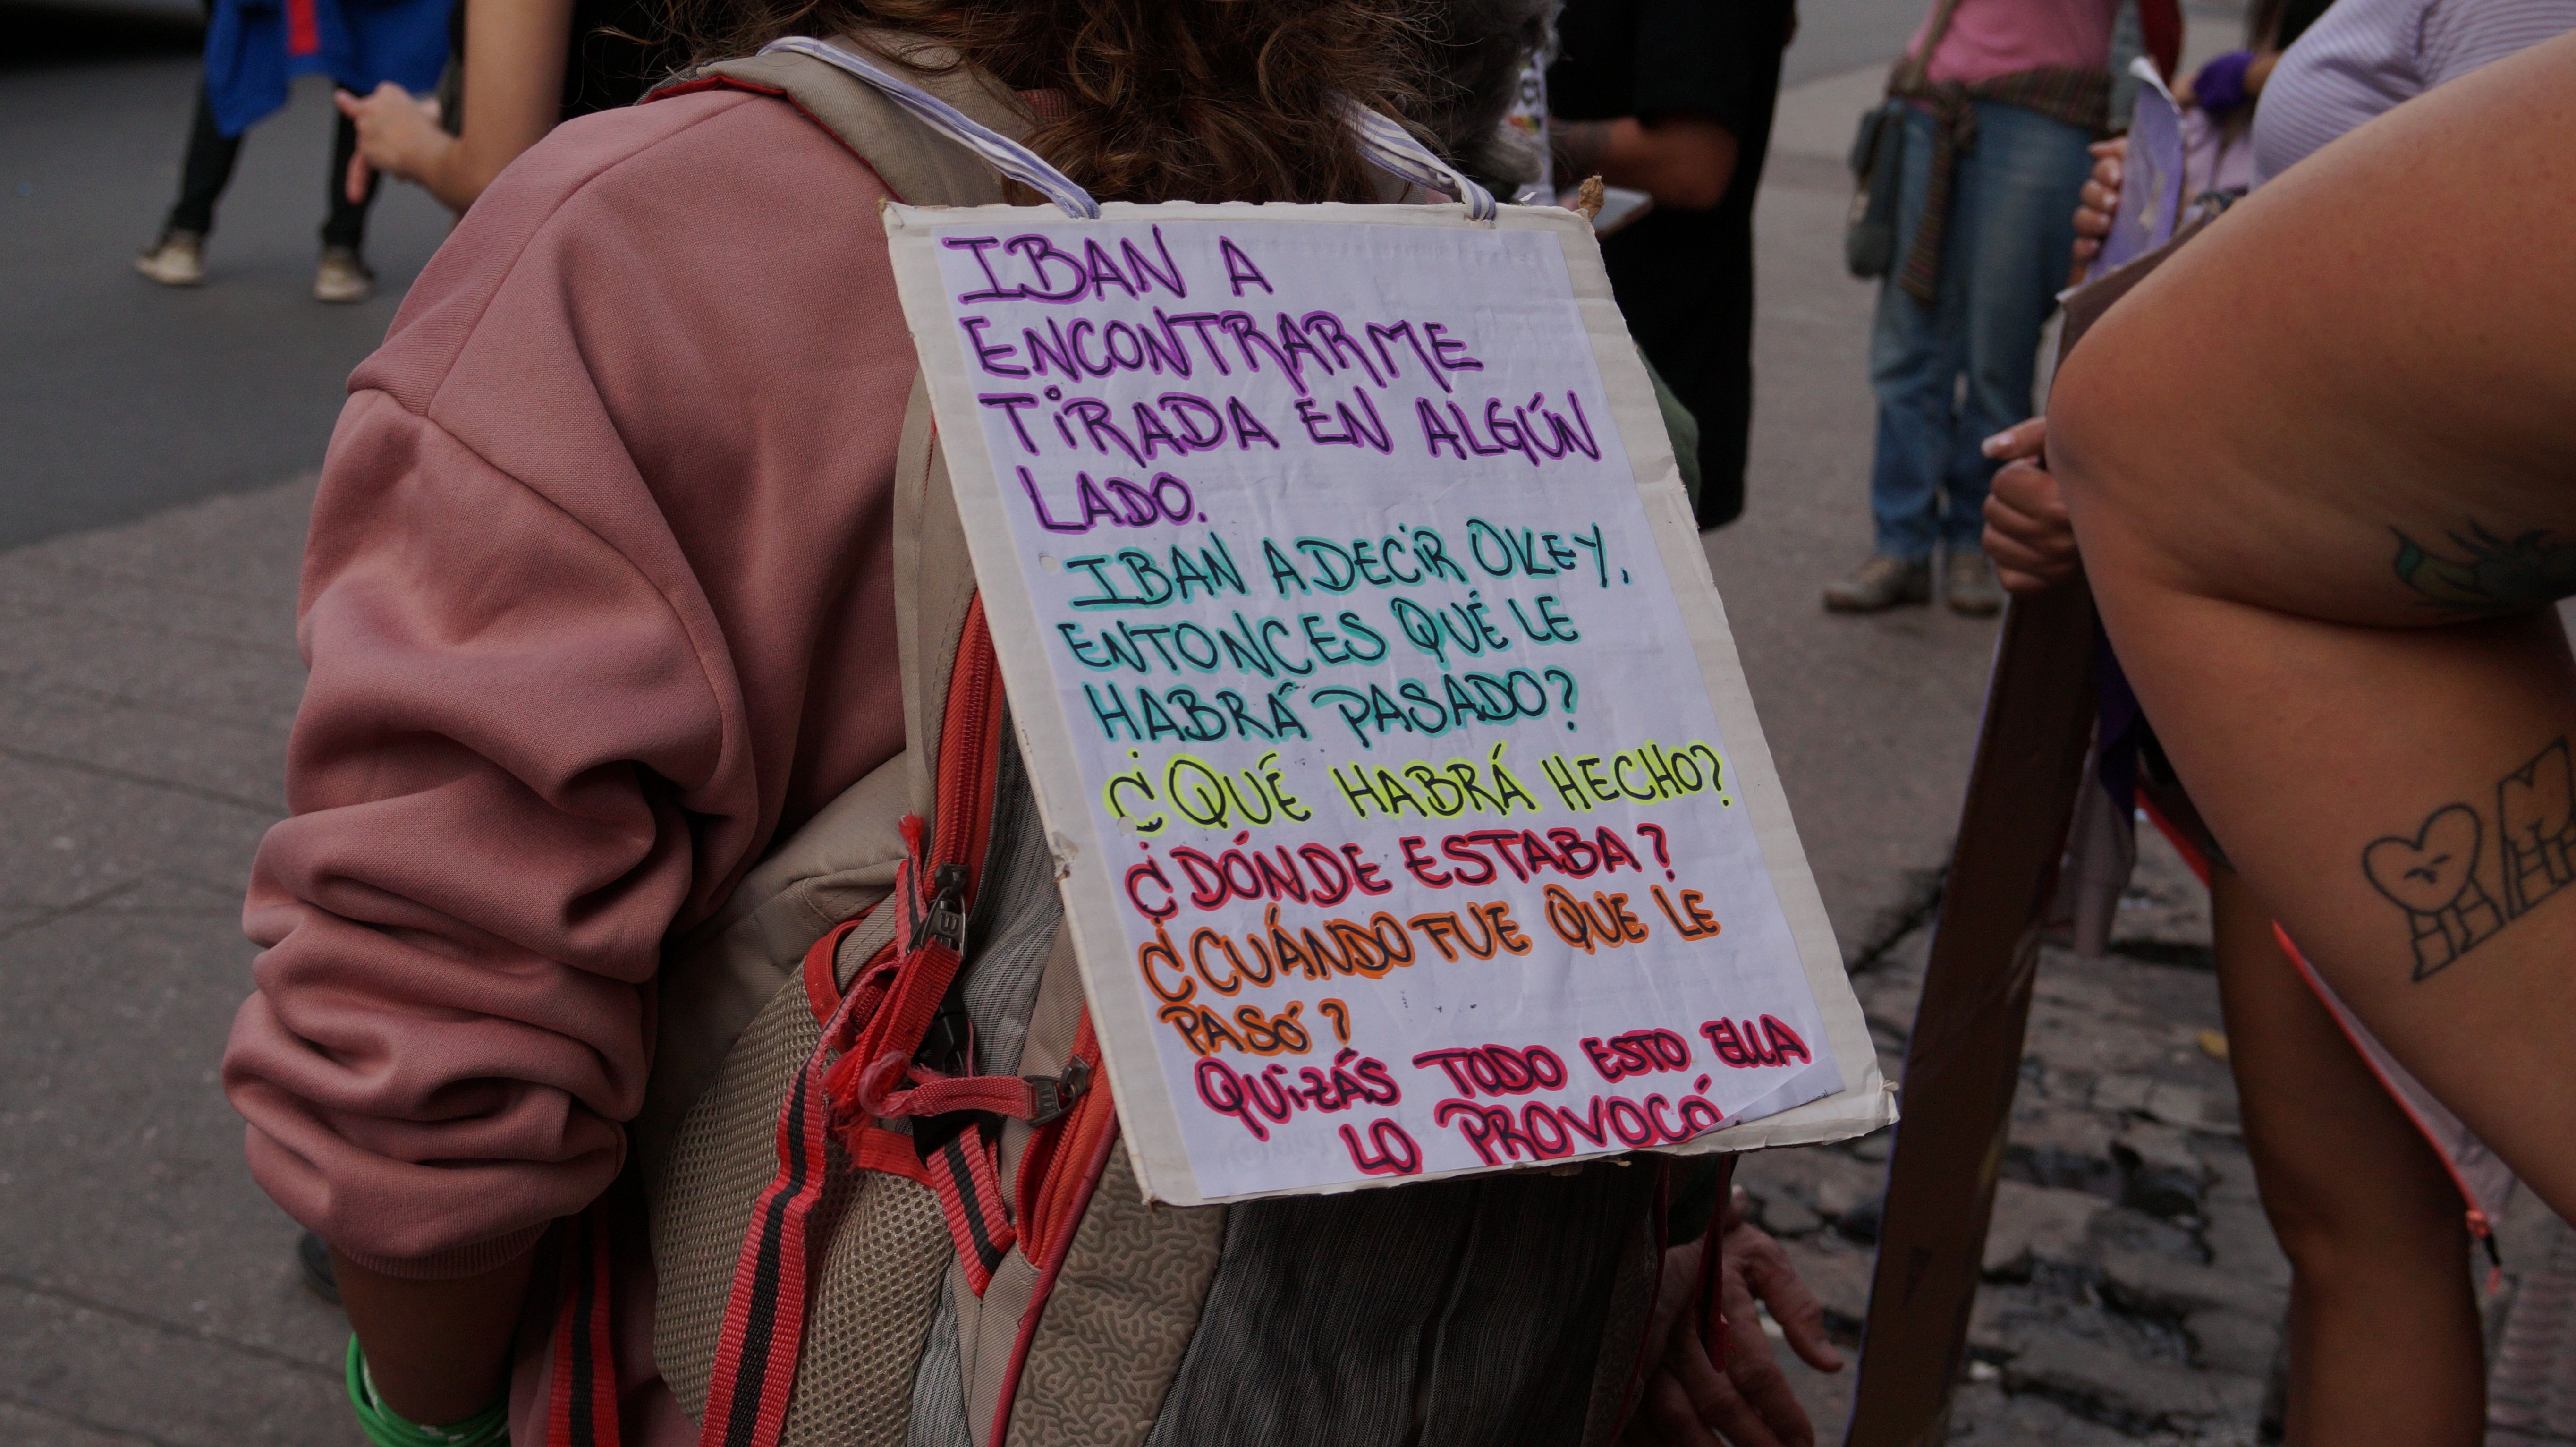 IBAN A
ENCONTRARME
TIRADA EN ALGÚN
LADO.
IBAN A DECIR OKEY,
ENTONCES QUÉ LE
HABRÁ PASADO?
¿QUÉ HABRÁ HECHO?
¿DÓNDE ESTABA?
¿CUÁNDO FUE QUE LE
PASÓ?
QUIZÁS TODO ESTO ELLA
LO PROVOCÓ